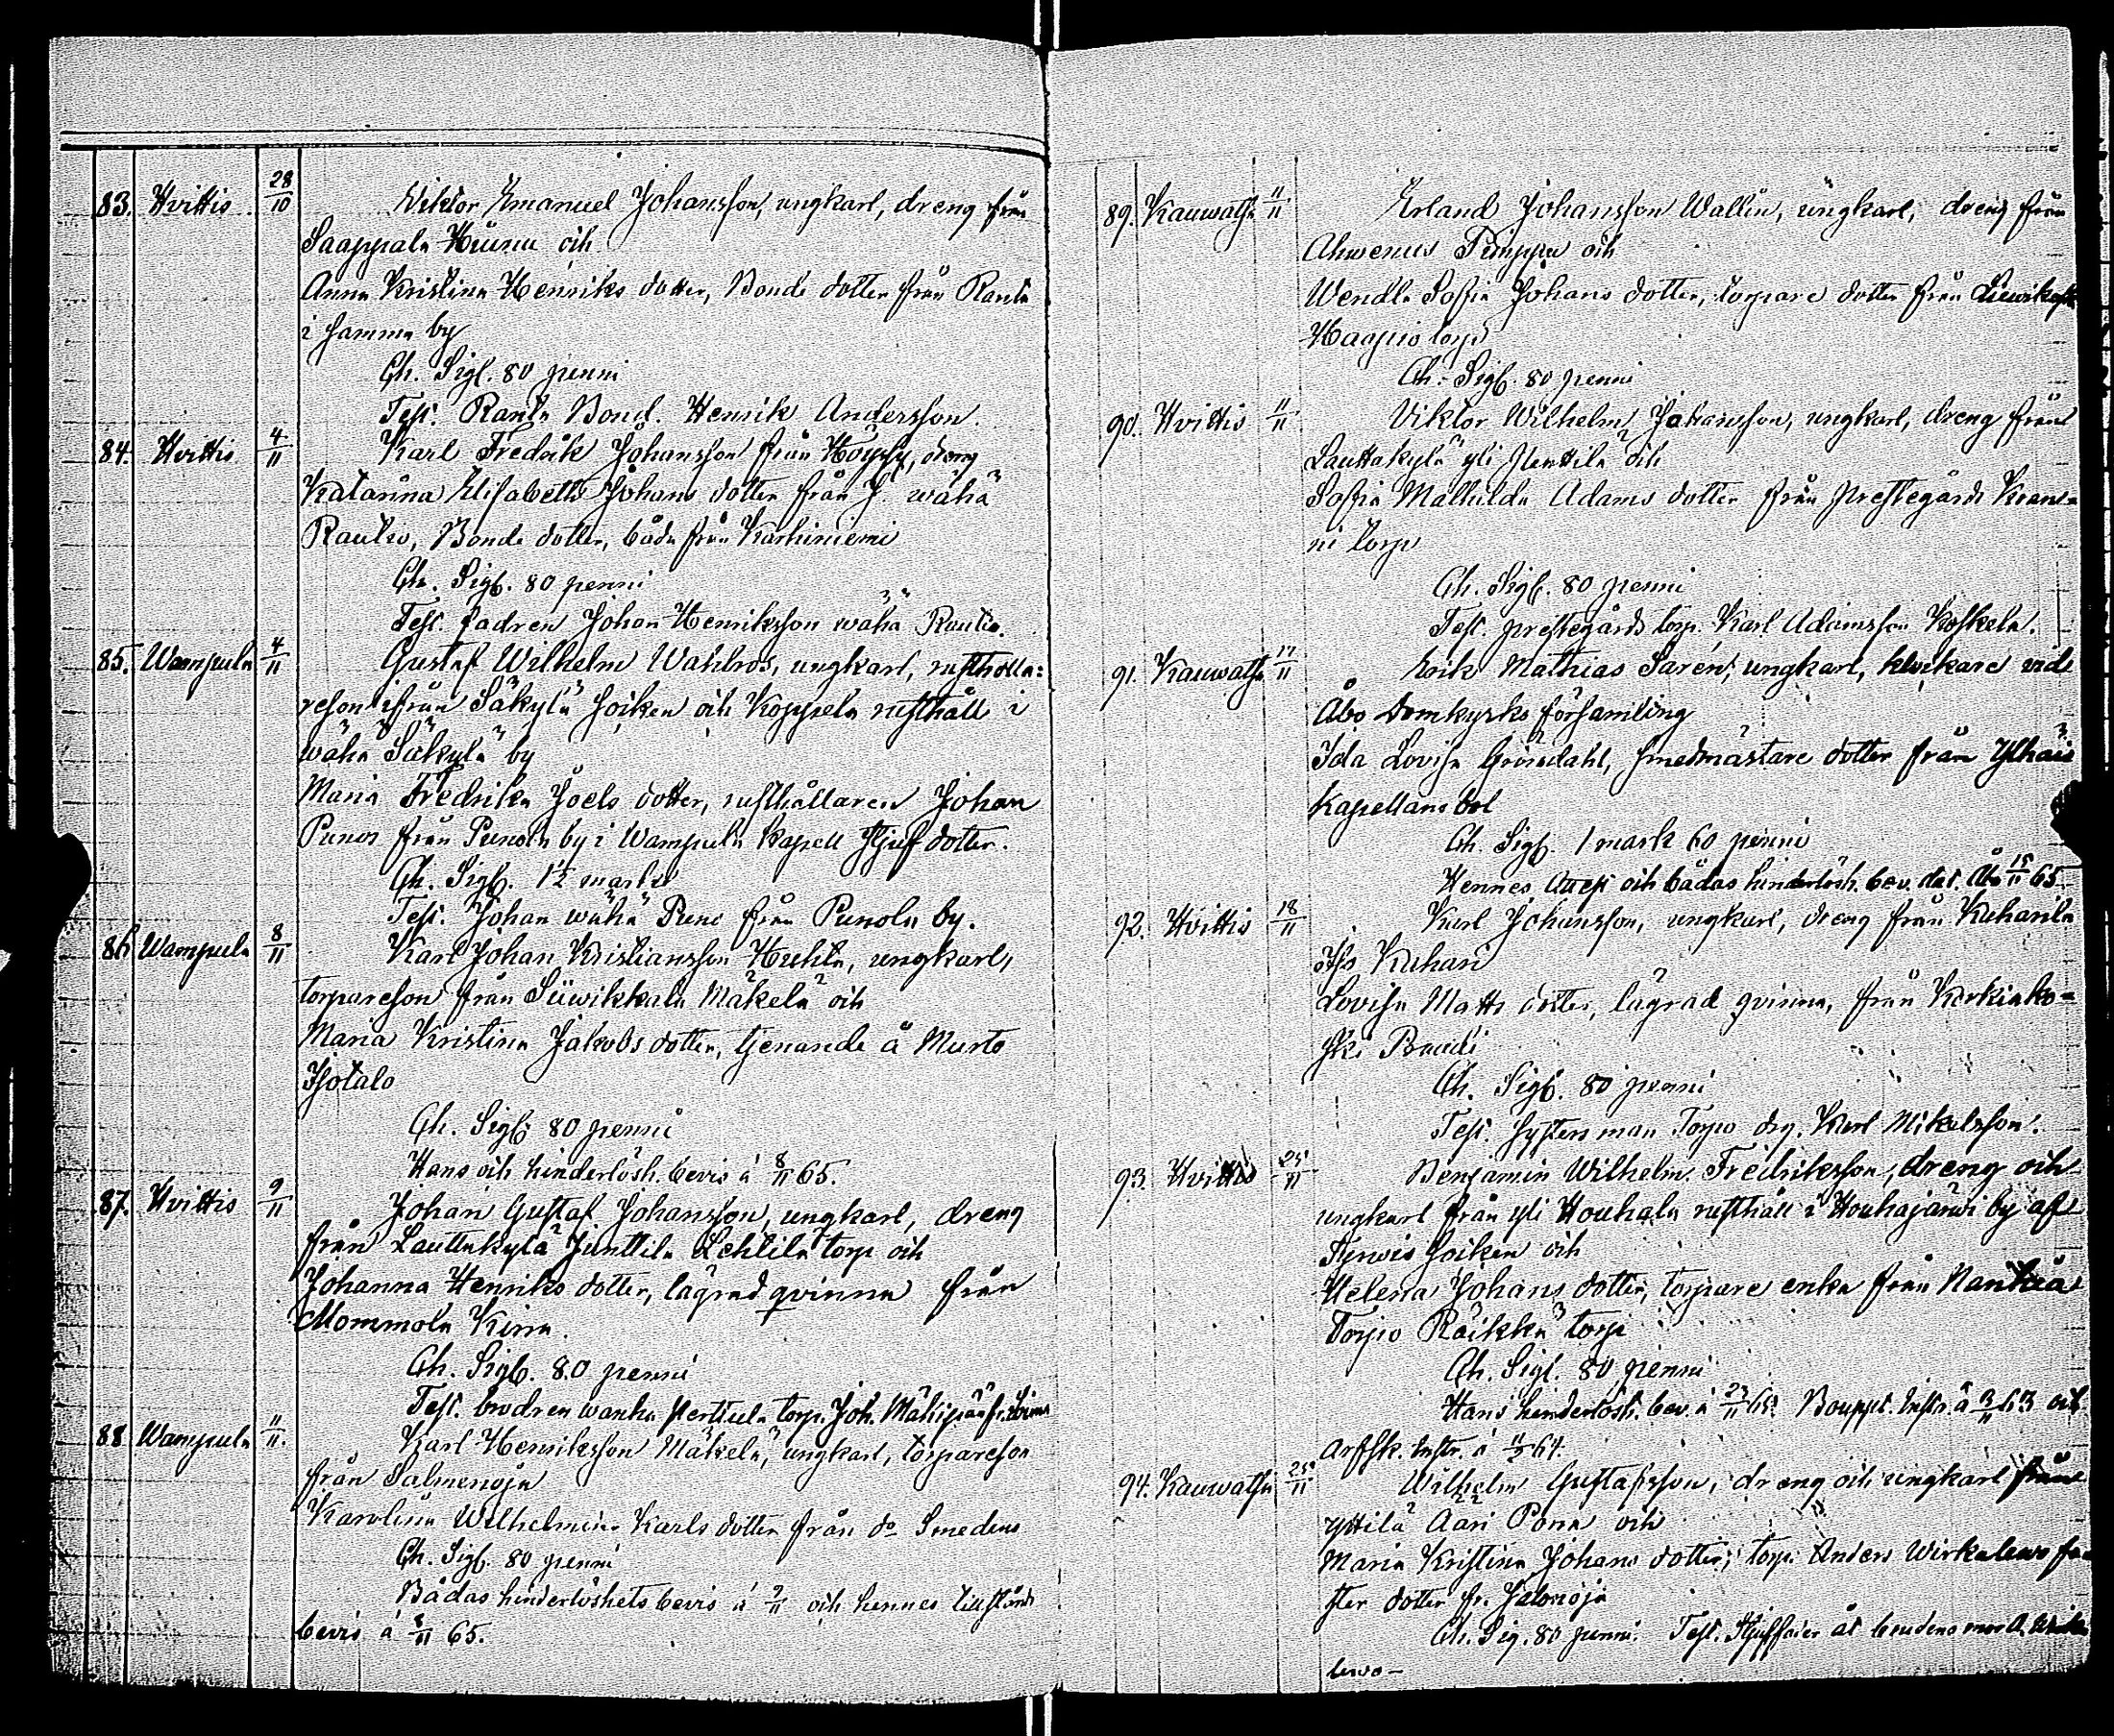 83. Hvittis 28/10 Viktor Emanuel Johansson, ungkarl, dreng från
Saappala och
Anna Kristina Henriks dotter, Bonde dotter från Ranta
i samma by
Ch. Sigf. 80 penni
Test. Ranta Bond. Henrik Andersson.
84. Hvittis 4/11 Karl Fredrik Johansson från dreng
Katarina Elisabeth Johans dotter från J. wähä
Rautio, Bonde dotter, båda från Karhiniemi
Ch. Sigf. 80 penni
Test. fadren Johan Henriksson wähä Rautio.
85. Wampula 4/11 Gustaf Wilhelm Wahlros, ungkarl, rusthålla=
reson ifrån Säkylä socken och Koppela rusthåll i
wähä Säkylä by
Maria Fredrika Joels dotter, rusthållaren Johan
Punos från Punola by i Wampula Kapell stjuf dotter.
Ch. Sigf. 1½ marka
Test. Johan wähä Puno från Punola by.
86 Wampula 8/11 Karl Johan Kristiansson Huhta, ungkarl,
torpareson från Siiwikkala Mäkelä och
Maria Kristina Jakobs dotter, tjenande å Murto
Isotalo
Ch. Sigf. 80 penni
Hans och hinderlösh. bevis á 8/11 65.
87. Hvittis 9/11 Johan Gustaf Johansson, ungkarl, dreng
från Lauttakylä Junttila Lehtilä torp och
Johanna Henriks dotter, lägrad qvinna från
Mommola Kirra.
Ch. Sigf. 80 penni
Test. brodren wanha Perttula torp. Joh.
88 Wampula 11/11. Karl Henriksson Mäkelä, ungkarl, torpareson
från Salmenoja
Karolina Wilhelmina Karls dotter från do Smedens
Ch. Sigf. 80 penni
Bådas hinderlöshets bevis á 9/11 och hennes tillstånds
bevis á 8/11 65.
89. Kauwatsa 11/11 Erland Johansson Wallin, ungkarl, dreng från
Ahwenus Pimppu och
Wendla Sofia Johans dotter, torpare dotter från
Haapio torp
Ch. Sigf. 80 penni
90. Hvittis 11/11 Viktor Wilhelm Johansson, ungkarl, dreng från
Lauttakylä yli Penttilä och
Sofia Mathilda Adams dotter från prestegårds
ni torp
Ch. Sigf. 80 penni
Test. prestegårds torp. Karl Adamsson Koskela.
91. Kauwatsa 17/11 Erik Mathias Sarén, ungkarl, klockare vid
Åbo Domkyrko församling
Ida Lovisa Gröndahl, smedmästare dotter från Yttilä
Kapellans bol
Ch. Sigf. 1 mark 60 penni
Hennes Attest och bådas hinderlösh. bev. dat. Åbo 15/11 65.
92. Hvittis 18/11 Karl Johansson, ungkarl, dreng från Kuharila
Iso Kuhari
Lovisa Matts dotter, lägrad qvinna, från Korkiako=
ski
Ch. Sigf. 80 penni
Test. systers man Torpo drg. Karl Mikelsson.
93. Hvittis 25/11 Benjamin Wilhelm Fredriksson, dreng och
ungkarl från yli Houhala rusthåll i Houhajärwi by af
Tyrwis socken och
Helena Johans dotter, torpare enka från
Torpo Räikkä torp
Ch. Sigf. 80 penni
Hans hinderlösh. bev. á 23/11 65. Bouppt. Instr. á 3/11 63 och
Arfsk. Instr. á 11/3 64.
94. Kauwatsa 25/11 Wilhelm Gustafsson, dreng och ungkarl från
Yttilä Ääri Ponn och
Maria Kristina Johans dotter, torp. Anders fo
ster dotter fr. Jalonoja
Ch. Sig. 80 penni. Test. åt brudens mor A.
lewo –